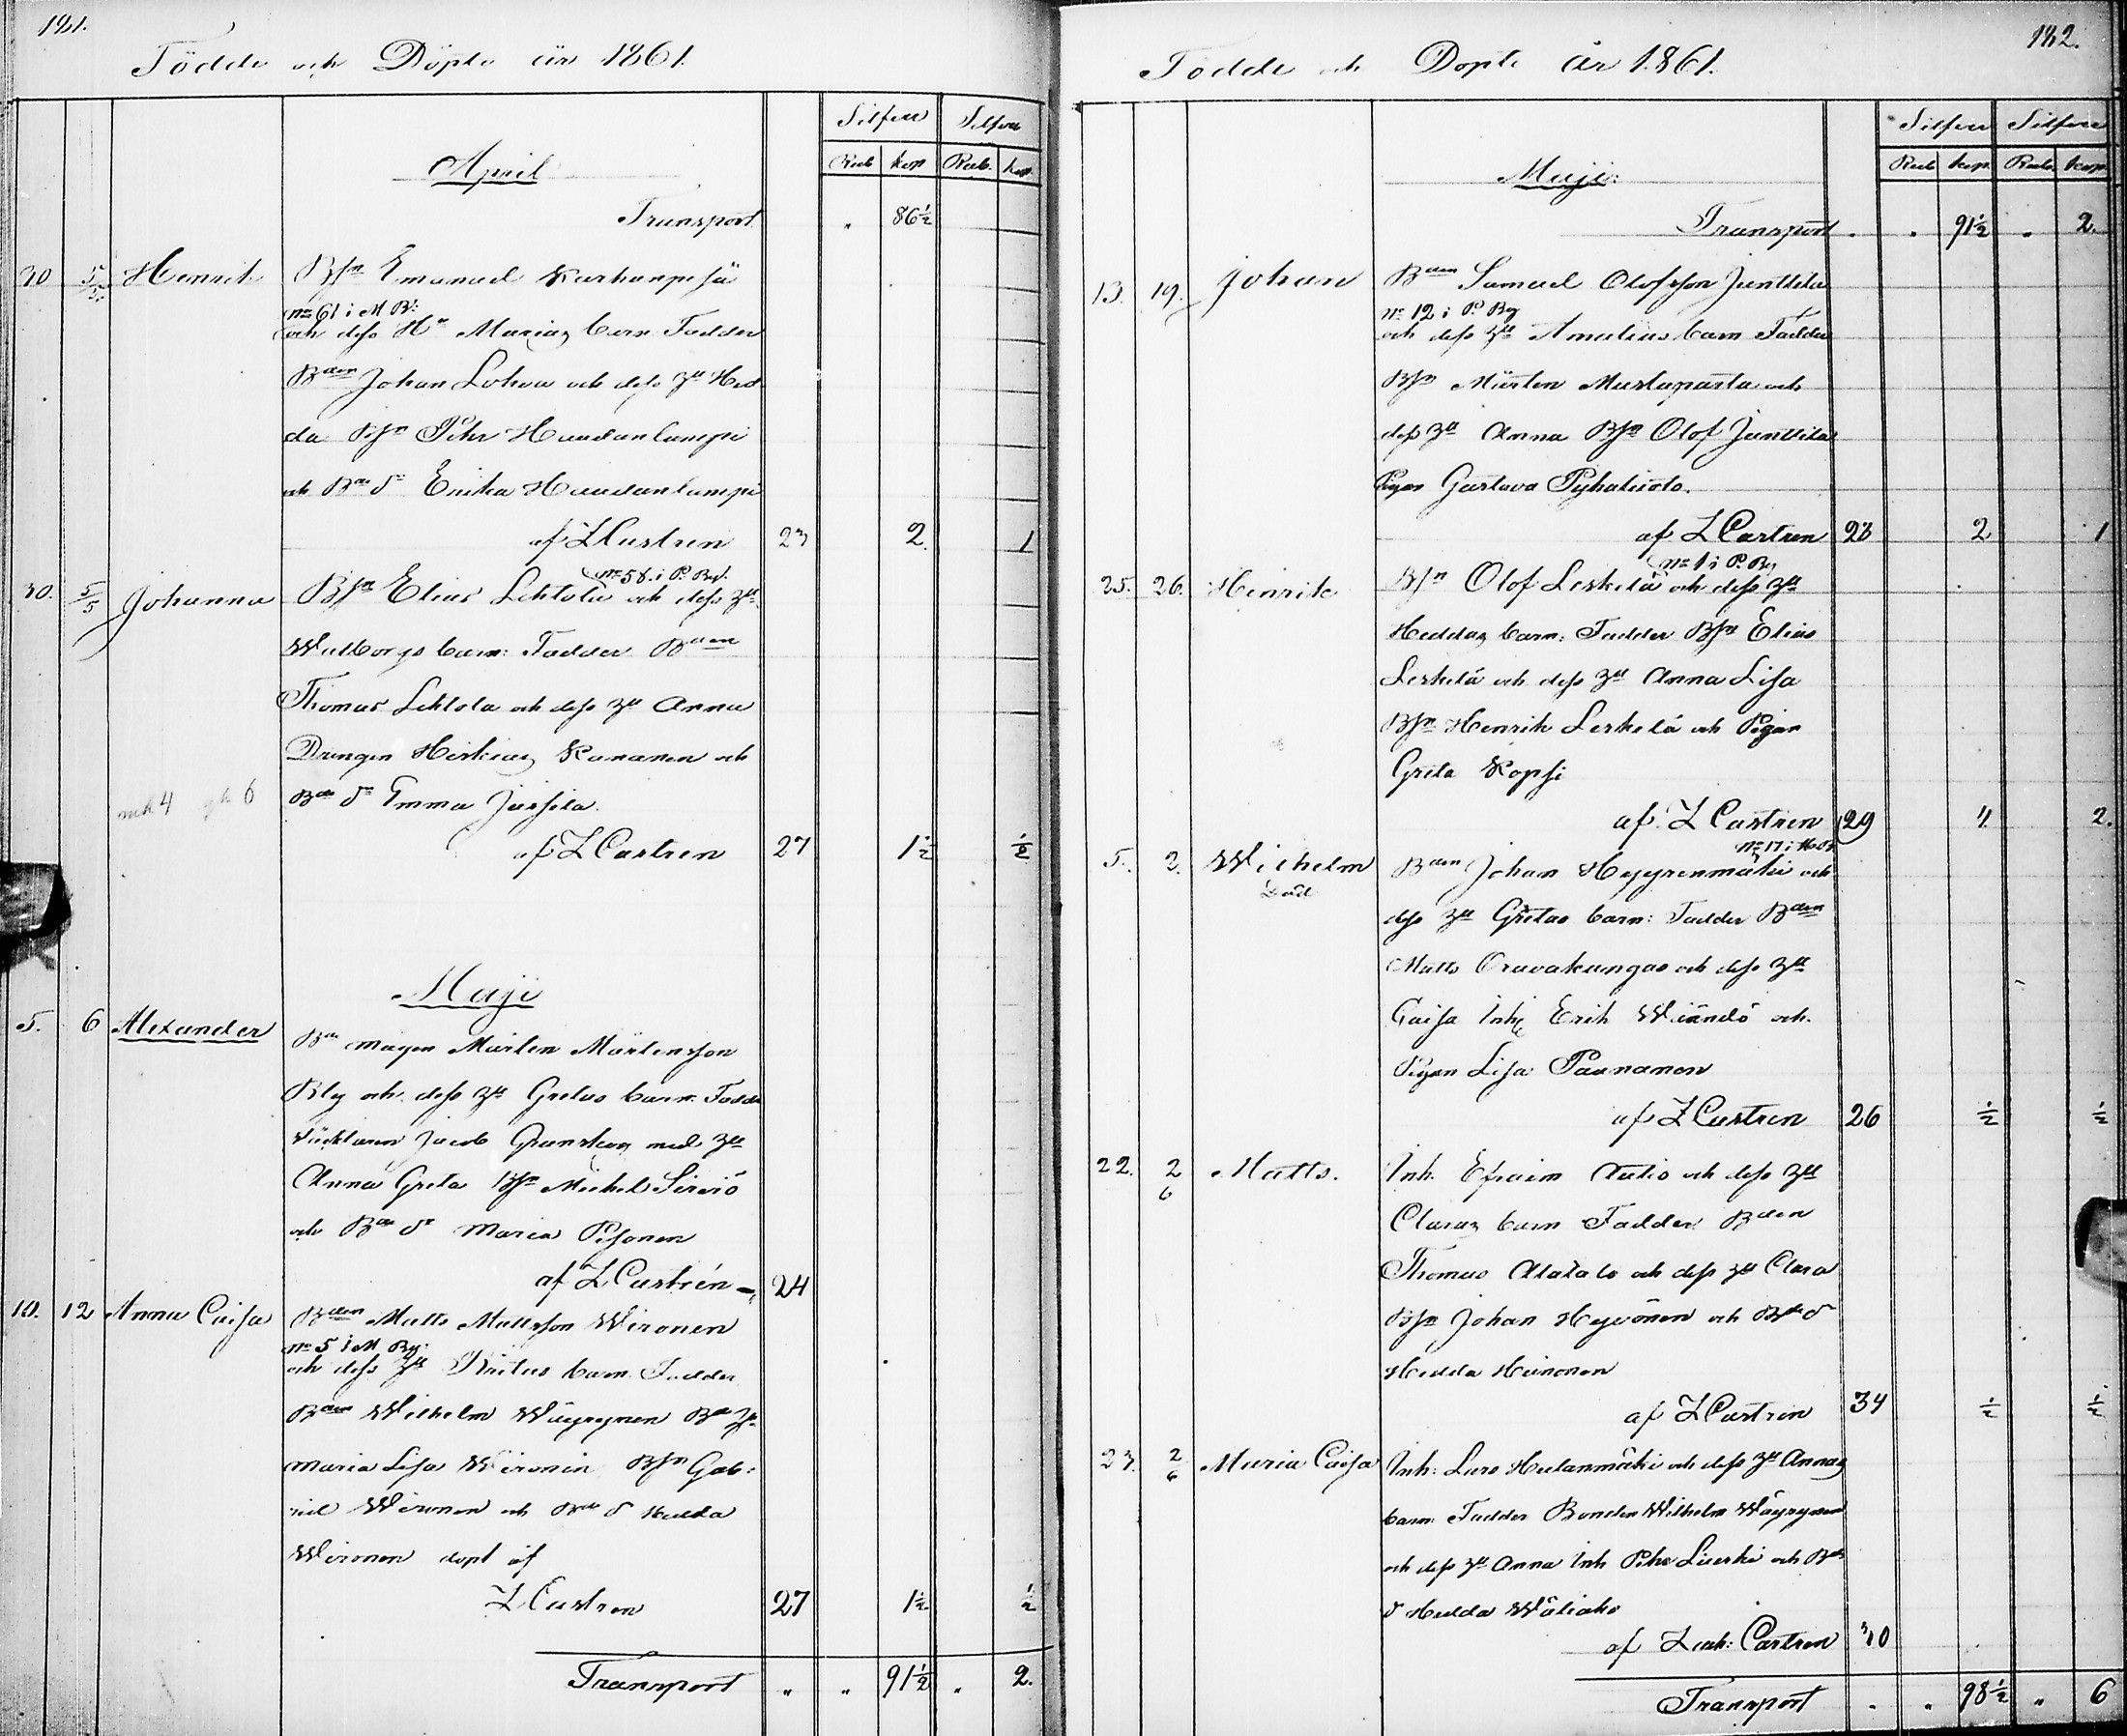 181.
Födde och Döpte år 1861.
Silfver Silfver
Rub kop Rub. kop
April
Transport " 86½
30 5/5. Henrik Bsn Emanuel Karhunpesä
No 61 i M By:
och dess Hu Marias barn Fadder
Bden Johan Lohva och dess Hu Hed
da Bsn Pehr Haudanlampi
och Bde dr Erika Haudanlampi
af Z Castren 23 2. 1
No 58. i P. By.
30. 5/5 Johanna Bsn Elias Lehtola och dess Hu
Walborgs barn: Fadder Bden
Thomas Lehtola och dess Hu Anna
Drengen Hiskias Kananen och
Bde dr Emma Jussila.
mk 4 gh 6
af Z Castren 27 1½ ½
Maji
5. 6 Alexander Bde mågen Mårten Mårtensson
Bly och dess Hu Gretas barn. Fadd
Jacob Granskog med Hu
Anna Greta Bsn Michel Sirviö
och Bde dr Maria Pesonen
af Z Castrén 24
10. 12 Anna Caisa Bden Matts Mattsson Wironen
No 5 i M By:
och dess Hu Britas barn Fadder
Bden Wilhelm Wäyrynen Bde Hu
Maria Lisa Wironen Bsn Gab:
riel Wironen och Bde d Hedda
Wironen döpt af
Z Castren 27 1½ ½
Transport " " 91½ " 2.
182.
Födde och Döpte år 1861.
Silfver Silfver
Rub kop. Rub. kop
Maji:
Transport . . 91½ " 2.
13. 19. Johan Bden Samuel Olofsson Junttila
No 12 i P. By
och dess Hu Amalias barn Fadder
Bsn Mårten Mustaparta och
dess Hu Anna Bsn Olof Junttila
Pigan Gustava Pyhaluoto.
af Z Castren 28 2 1
No 1 i P. By
25. 26. Henrik Bsn Olof Leskelä och dess Hu
Heddas barn: Fadder Bsn Elias
Leskelä och dess Hu Anna Lisa
Bsn Henrik Leskelä och Pigan
Greta Kopsi
af Z Castren 29 4 2.
No 17 i
5. 2. Wilhelm Bden Johan Heyyrenmäki och
Död
dess Hu Gretas barn: Fadder Bden
Matts Oravakangas och dess Hu
Caisa Inh. Erik Wäändö och
Pigan Lisa Paananen
af Z Castren 26 ½ ½
22. 2/6 Matts. Inh. Efraim Autio och dess Hu
Claras barn Fadder Bden
Thomas Alatalo och dess Hu Clara
Bsn Johan Hyvönen och Bde d
Hedda Heinonen
af Z Castren 34 ½ ½
23. 2/6 Maria Caisa Inh: Lars Hulanmäki och dess Hu Annas
barn. Fadder Bonden Wilhelm Wäyrynen
och dess Hu Anna Inh Pehr Lieski och Bde
d Hedda Wäliaho
af Zach: Castren 30
Transport . . 98½ " 6